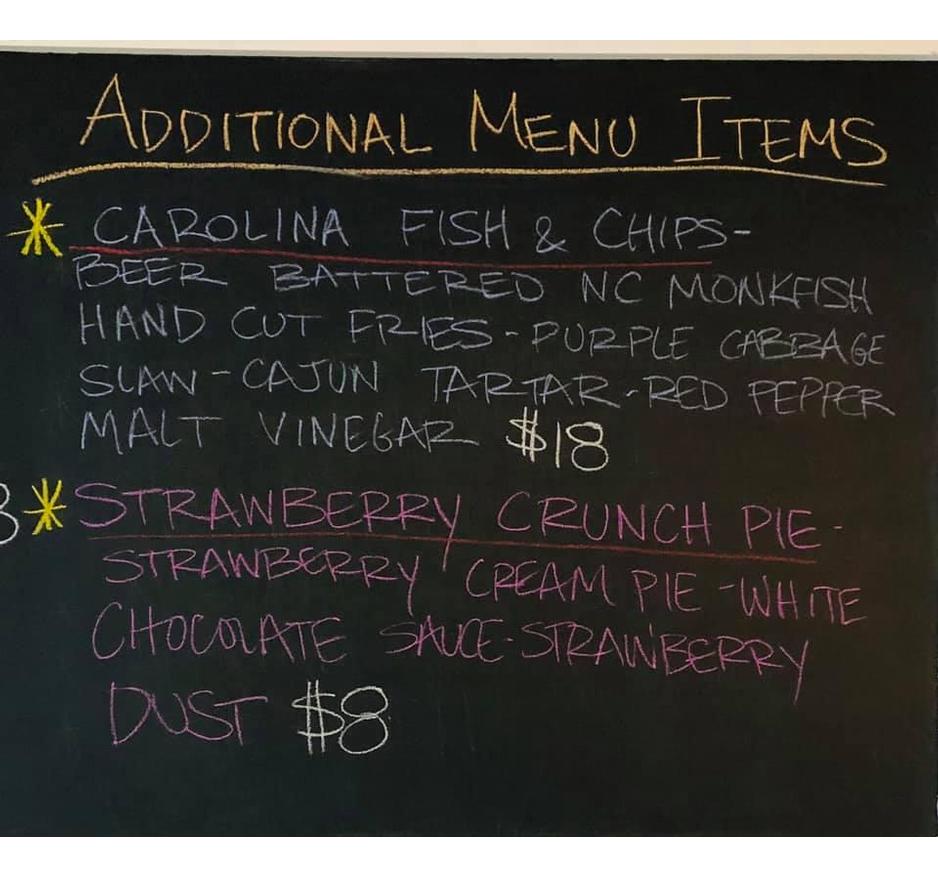 ADDITIONAL MENU ITEMS
* CAROLINA FISH & CHIPS-
BEER BATTERED NC MONKFISH
HAND CUT FRIES - PURPLE CABBAGE
SLAW - CAJUN TARTAR - RED PEPPER
MALT VINEGAR $18
* STRAWBERRY CRUNCH PIE -
STRAWBERRY CREAM PIE - WHITE
CHOCOLATE SAUCE - STRAWBERRY
DUST $8